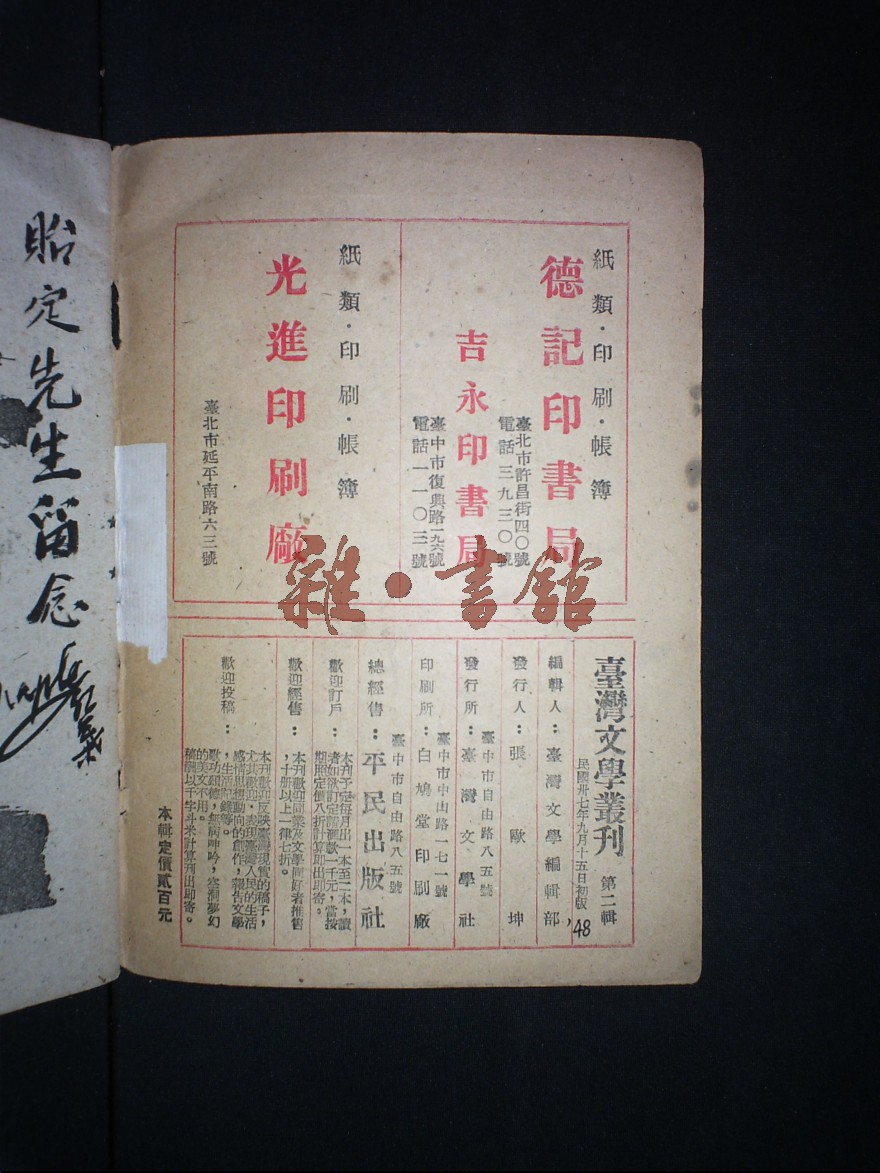 紙類·印刷·帳簿
德記印書局
臺北市許昌街四〇號
電話三九三〇號
吉永印書局
臺中市復興路一九六號
電話一一〇三號
紙類·印刷·帳簿
光進印刷廠
臺北市延平南路六三號
雜·書館
臺灣文學叢刊 第二輯
民國卅七年九月十五日初版
,48
編輯人:臺灣文學編輯部
發行人:張歐坤
發行所:臺灣文學社
臺中市自由路八五號
印刷所:白鳩堂印刷廠
臺中市中山路一七一號
總經售:平民出版社
臺中市自由路八五號
歡迎訂戶:本刊予定每月出一本至二本,讀
者如欲訂定請匯款一千元,當按
期照定價八折計算即出即寄。
歡迎經售:本刊歡迎同業及文學同好者推售
,十册以上一律七折。
歡迎投稿:本刊歡迎反映臺灣現實的稿子,
尤其歡迎,表現臺灣人民的生活
感情思想動向的創作,報告文學
,生活記錄等。
歌功頌德,無病呻吟,空洞夢幻
的美文不用。
稿酬以千字斗米計算刊出即寄。
本輯定價貳百元
貽定先生留念